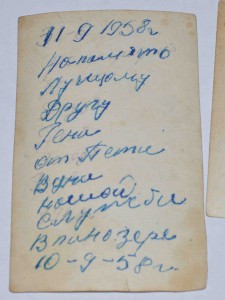 11-9 1958г
На память
Лучшому
Другу
Гени
от Пети
В дни
нашой
службы
В пинозере
10-9-58г.